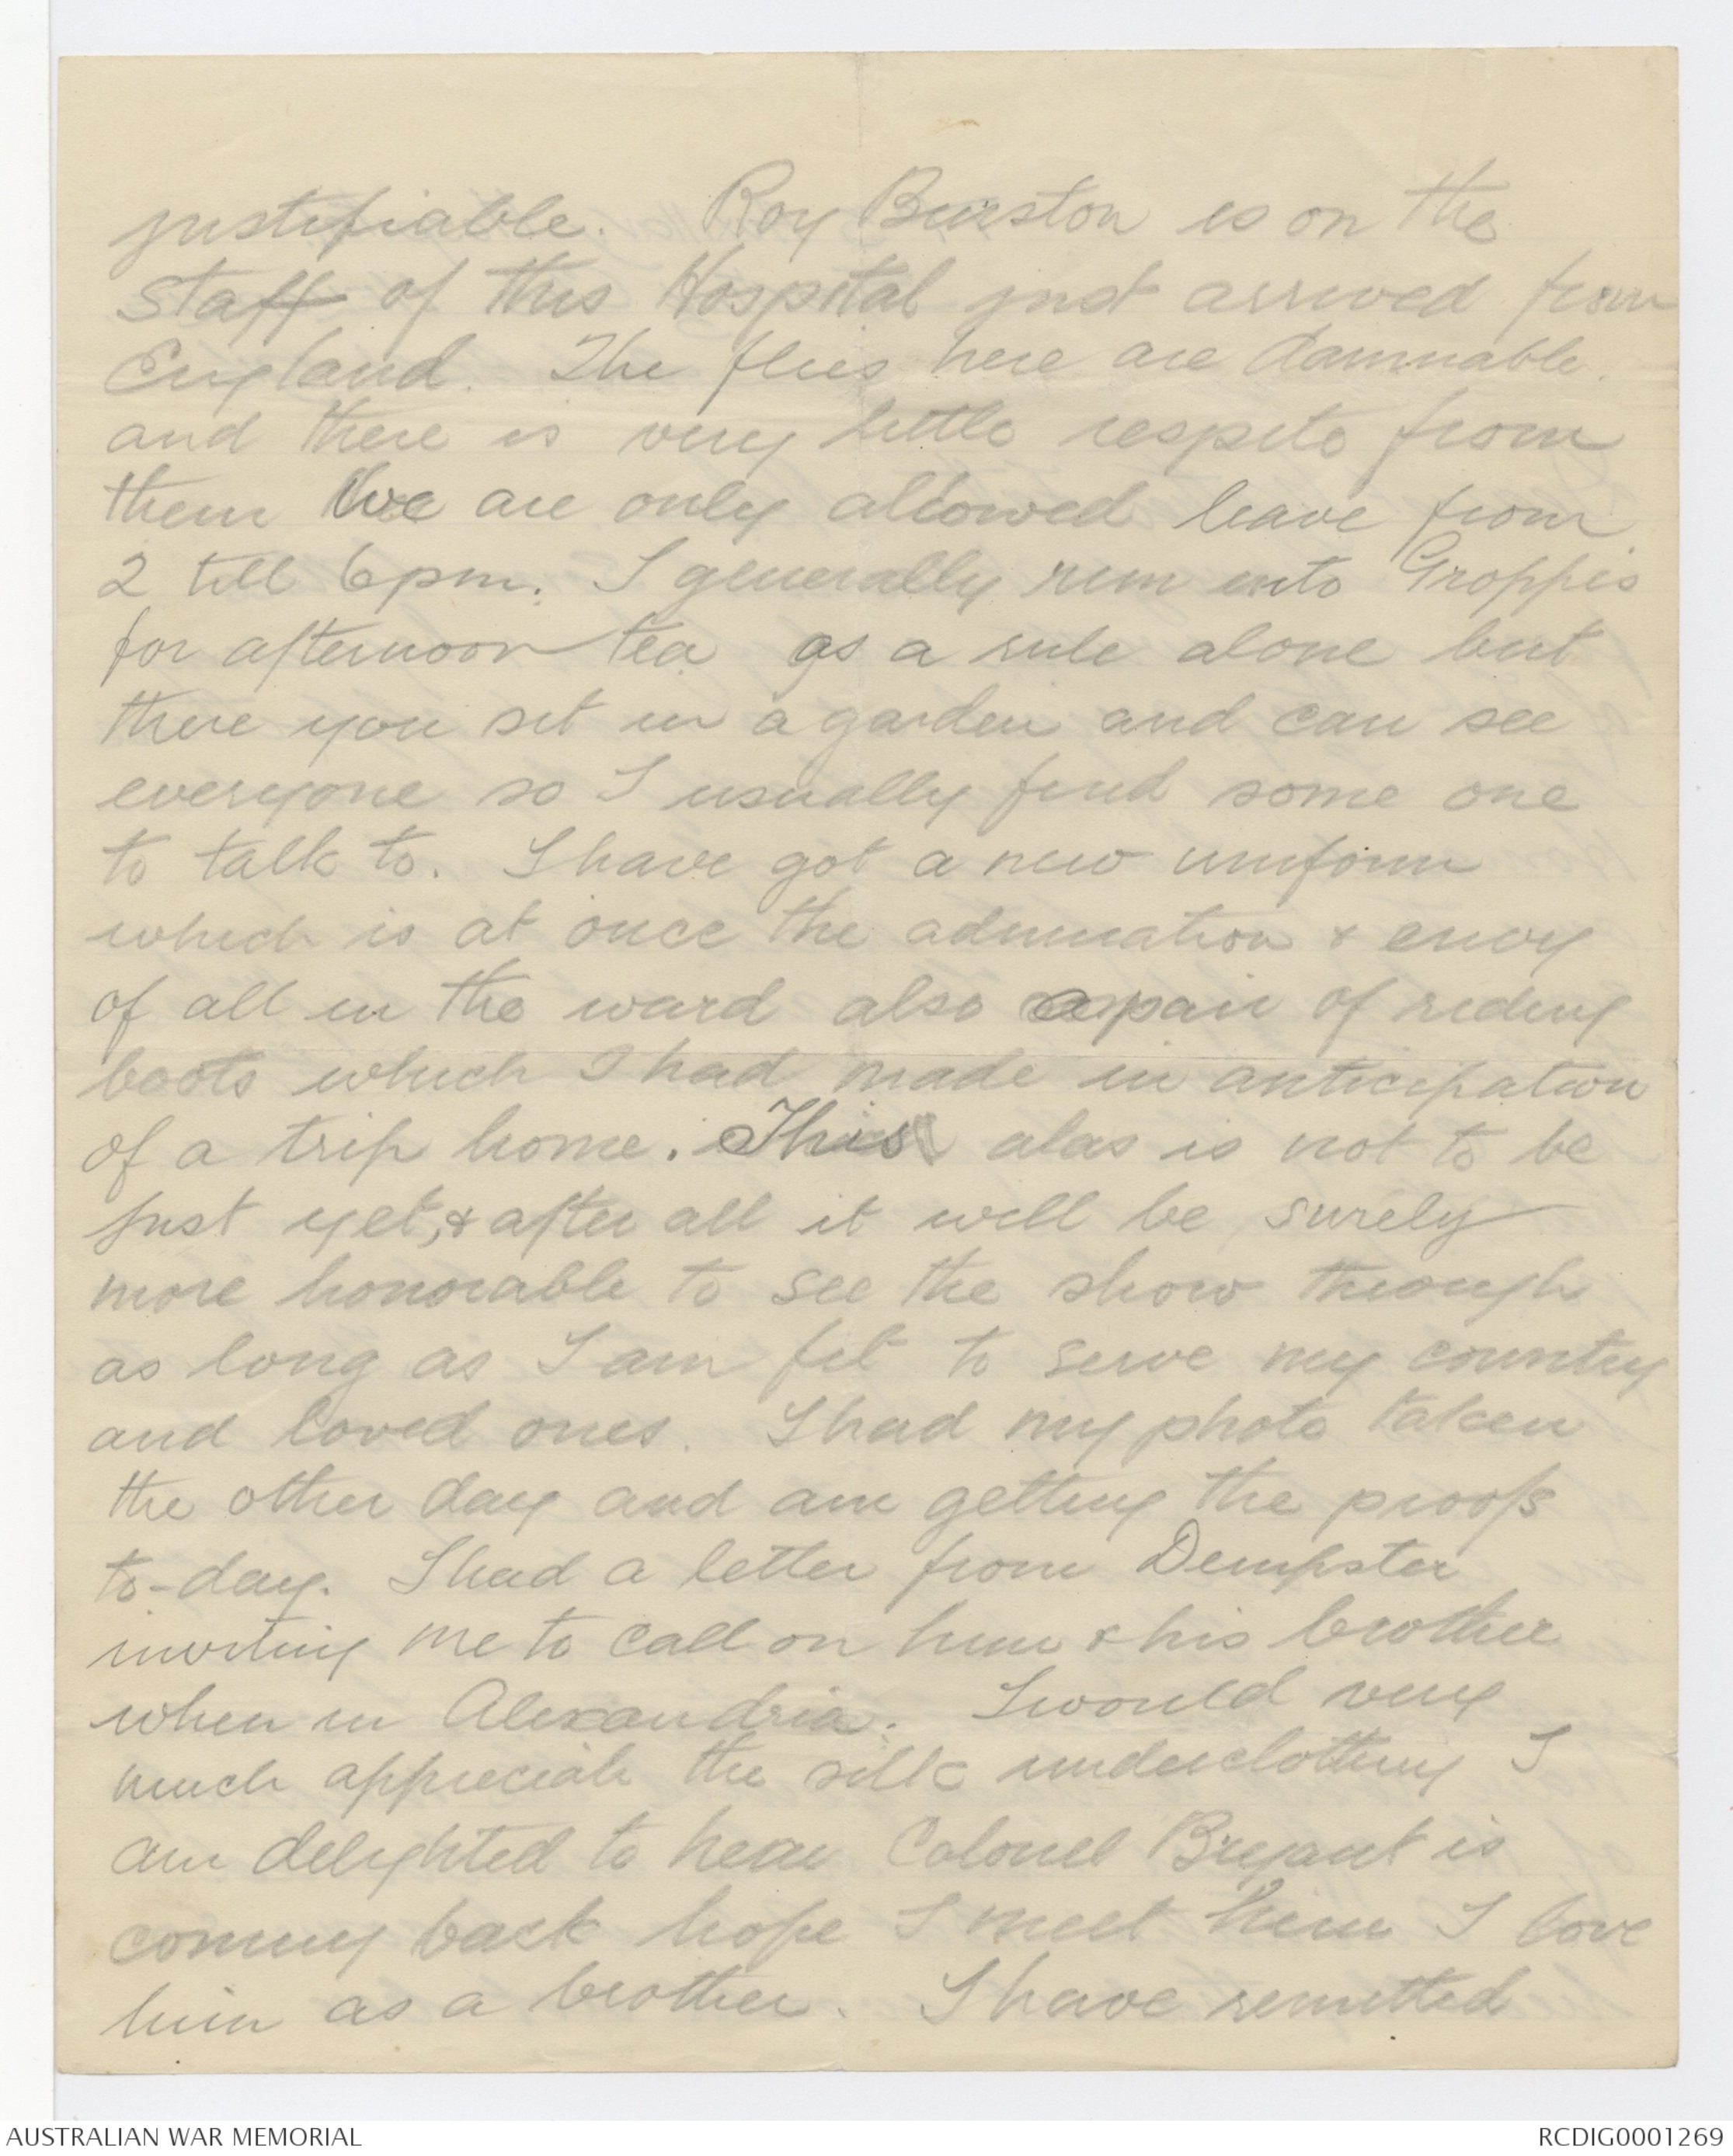 justifiable. Roy Burston is on the
staff of this Hospital just arrived from
England. The flies here are damnable.
and there is very little respite from
them We are only allowed leave from
2 till 6pm. I generally run into Groppis
for afternoon tea as a rule alone but
there you sit in a garden and can see
everyone so I usually find some one
to talk to. I have got a new uniform
which is at once the admiration & envy
of all in the ward also a pair of riding
boots which I had made in anticipation
of a trip home. This alas is not to be
just yet, & after all it will be surely
more honorable to see the show through
as long as I am fit to serve my country
and loved ones. I had my photo taken
the other day and am getting the proofs
to-day. I had a letter from Dempster
inviting me to call on him & his brother
when in Alexandria. I would very
much appreciate the silk underclothing I
am delighted to hear Colonel Bryant is
coming back hope I meet him I love
him as a brother. I have remitted
AUSTRALIAN WAR MEMORIAL
RCDIG0001269